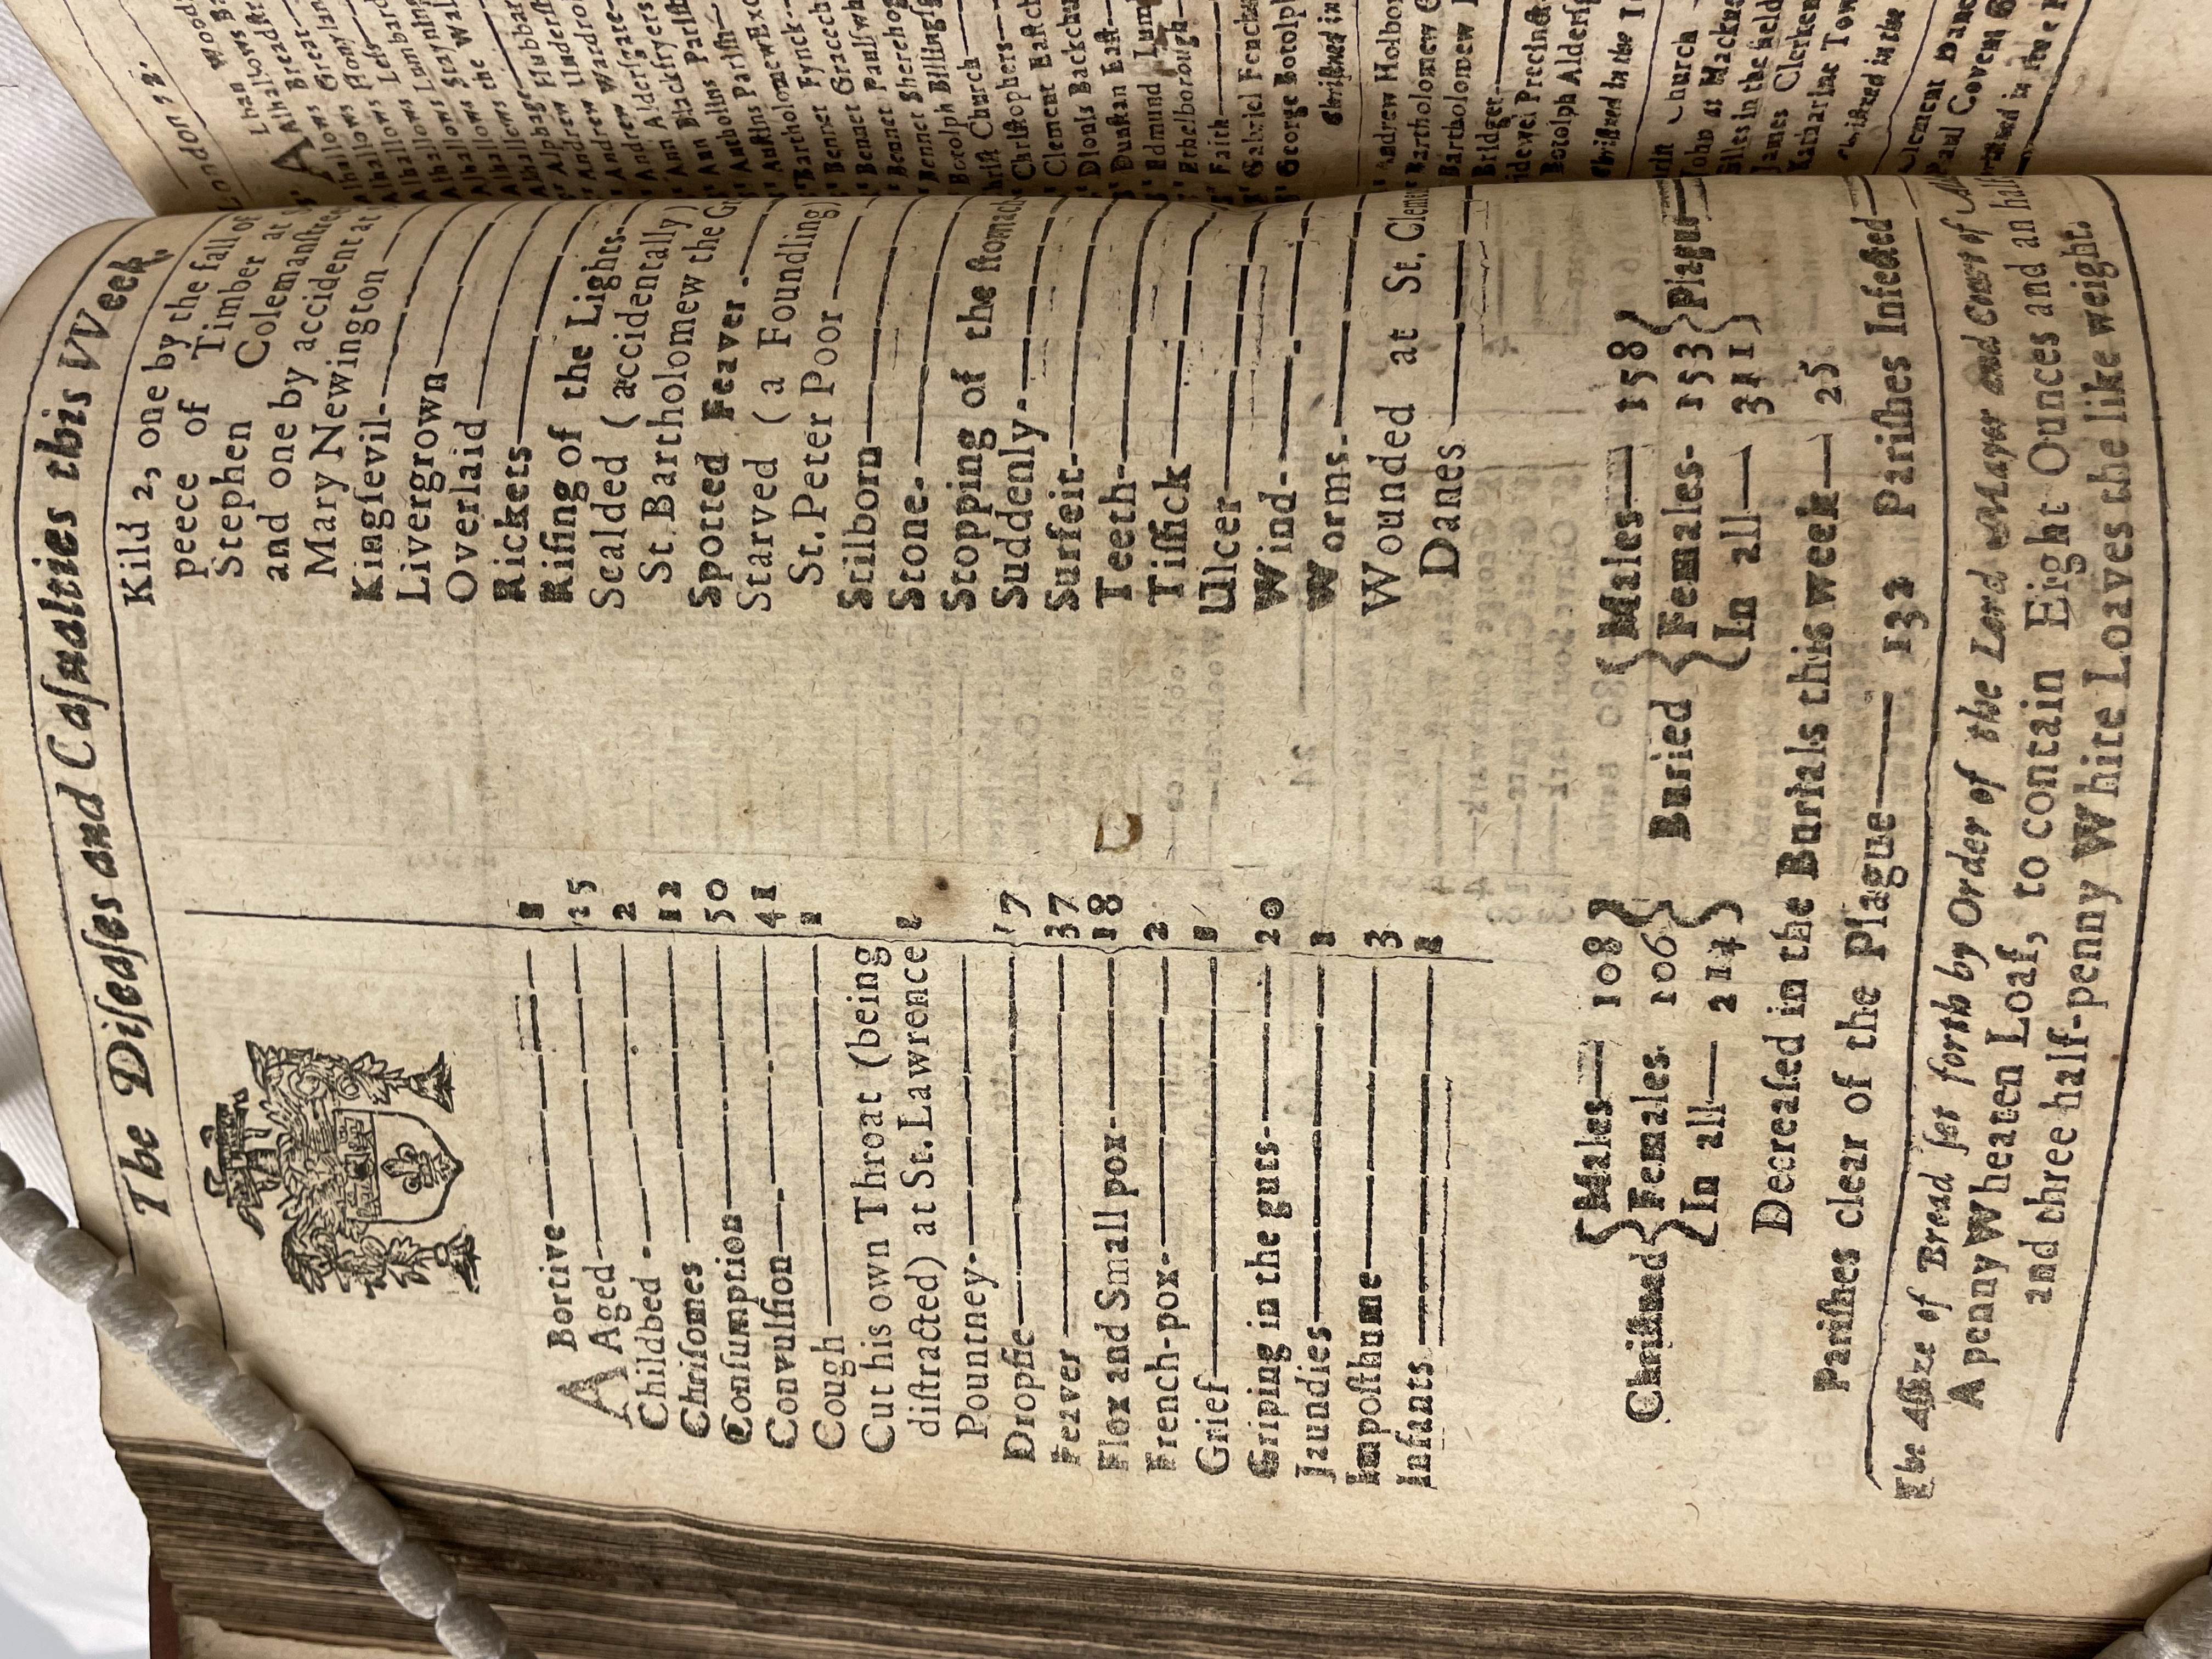 The Diſeaſes and Caſualties this Week.
ABortive 1
Aged 25
Childbed 2
Chriſomes 12
Conſumption 50
Convulſion 41
Cough 1
Cut his own Throat (being
diſtracted) at St. Lawrence
Pountney
Dropſie 17
Feaver 37
Flox and Small pox 18
French-pox 2
Grief 1
Griping in the guts 20
Jaundies 1
Impoſthume 3
Infants
Kild 2, one by the fall of
peece of Timber at
Stephen Coleman
and one by accident at
Mary Newington
Kingſevil
Livergrown
Overlaid
Rickets
Riſing of the Lights
Scalded ( accidentally
St. Bartholomew the
Spotted Feaver
Starved ( a Foundling)
St. Peter Poor
Stilborn
Stone
Stopping of the ſtomach
Suddenly
Surfeit
Teeth
Tiſſick
Ulcer
Wind
Worms
Wounded at St. Clem
Danes
Chriſtned { Males 108 Females 106 In all 214 }
Buried { Males 158 Females 153 In all 311 } Plague
Decreaſed in the Burials this week 25
Pariſhes clear of the Plague 132 Pariſhes Infected
The Aſſize of Bread ſet forth by Order of the Lord Mayor and Court of
A penny Wheaten Loaf, to contain Eight Ounces and an half
and three half-penny White Loaves the like weight.
London 12.
Alhallows
Alhallows Great
Alhallows Hony
Alhallows Leſs
Alhallows Lumbard
Alhallows Staynin
Alhallows the Wal
Alphage
Andrew Hubbar
Andrew Underſh
Andrew Wardro
Ann Alderſgate
Ann Blackfryers
Antholins Pariſh
Auſtins Pariſh
Bartholomew Exc
Bennet Fynck
Bennet Gracech
Bennet Paulſwh
Bennet Sherehog
Botolph Billingſ
Chriſt Church
Chriſtophers
Clement Eaſtch
Dionis Backchu
Dunſtan Eaſt
Edmund Lum
Ethelborough
Faith
Gabriel Fenchu
George Botolph
Chriſtned in
Andrew Holbo
Bartholomew G
Bartholomew
Bridget
Bridewel Precinct
Botolph Alderſg
Chriſtned in the
Church
John at Hackne
Giles in the field
James Clerken
Katharine Tow
Chriſtned in the
Clement Dane
Paul Covent G